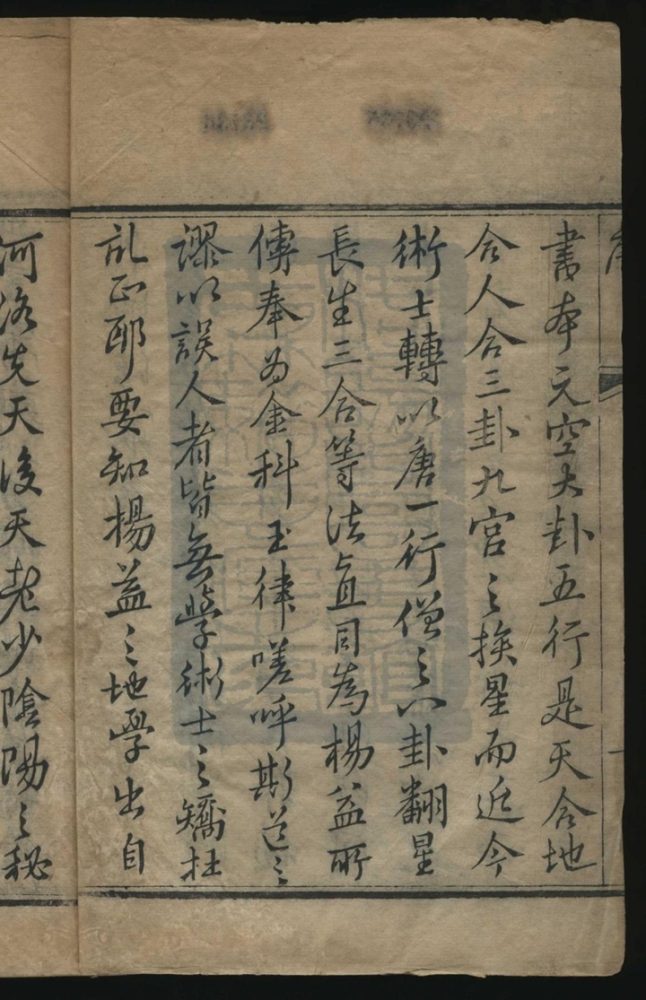 書夲元空大卦五行是天合地
合人合三卦九宫之挨星而近今
術士轉以唐一行僧之八卦翻星
長生三合等法直目為楊益所
傳奉為金科玉律嗟呼斯道之
謬以誤人者皆無學術士之矯枉
乱正耶要知楊益之地學出自
河洛先天後天老少陰陽之秘